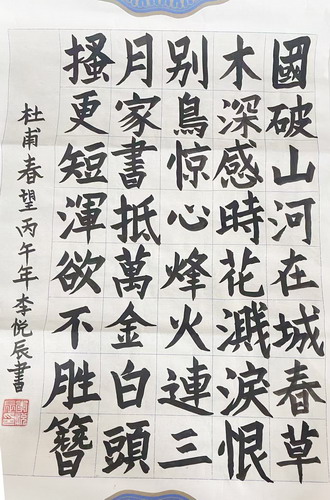 國破山河在城春草
木深感時花濺淚恨
别鳥惊心烽火連三
月家書抵萬金白頭
搔更短渾欲不胜簪
杜甫春望丙午年李悦辰書